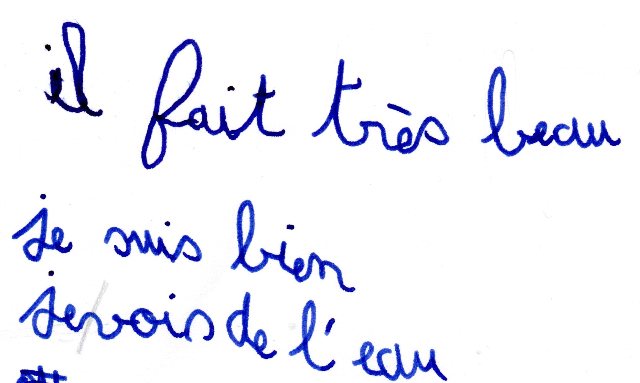 il fait très beau
je suis bien
je vois de l'eau